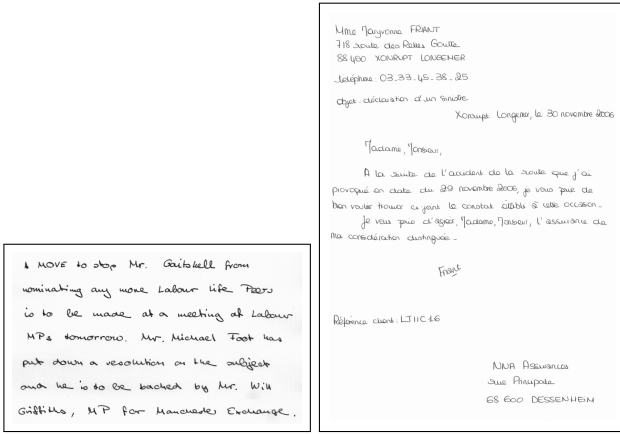 A MOVE to stop Mr. Gaitskell from
nominating any more Labour life Peers
is to be made at a meeting of Labour
MPs tomorrow. Mr. Michael Foot has
put down a resolution on the subject
and he is to be backed by Mr. Will
Griffiths, MP for Manchester Exchange.
Mme Maryvonne FRIANT
718 route des Relles Goutte
88460 XONRUPT LONGEMER
téléphone : 03.33.45.38.25
Objet : déclaration d'un sinistre
Xonrupt Longemer, le 30 novembre 2006
Madame, Monsieur,
A la suite de l'accident de la route que j'ai
provoqué en date du 29 novembre 2006, je vous prie de
bien vouloir trouver ci joint le constat établi à cette occasion.
Je vous prie d'agréer, Madame, Monsieur, l'assurance de
ma considération distinguée.
Friant
Référence client : LJIIC16
NNA Assurances
rue Principale
68 600 DESSENHEIM